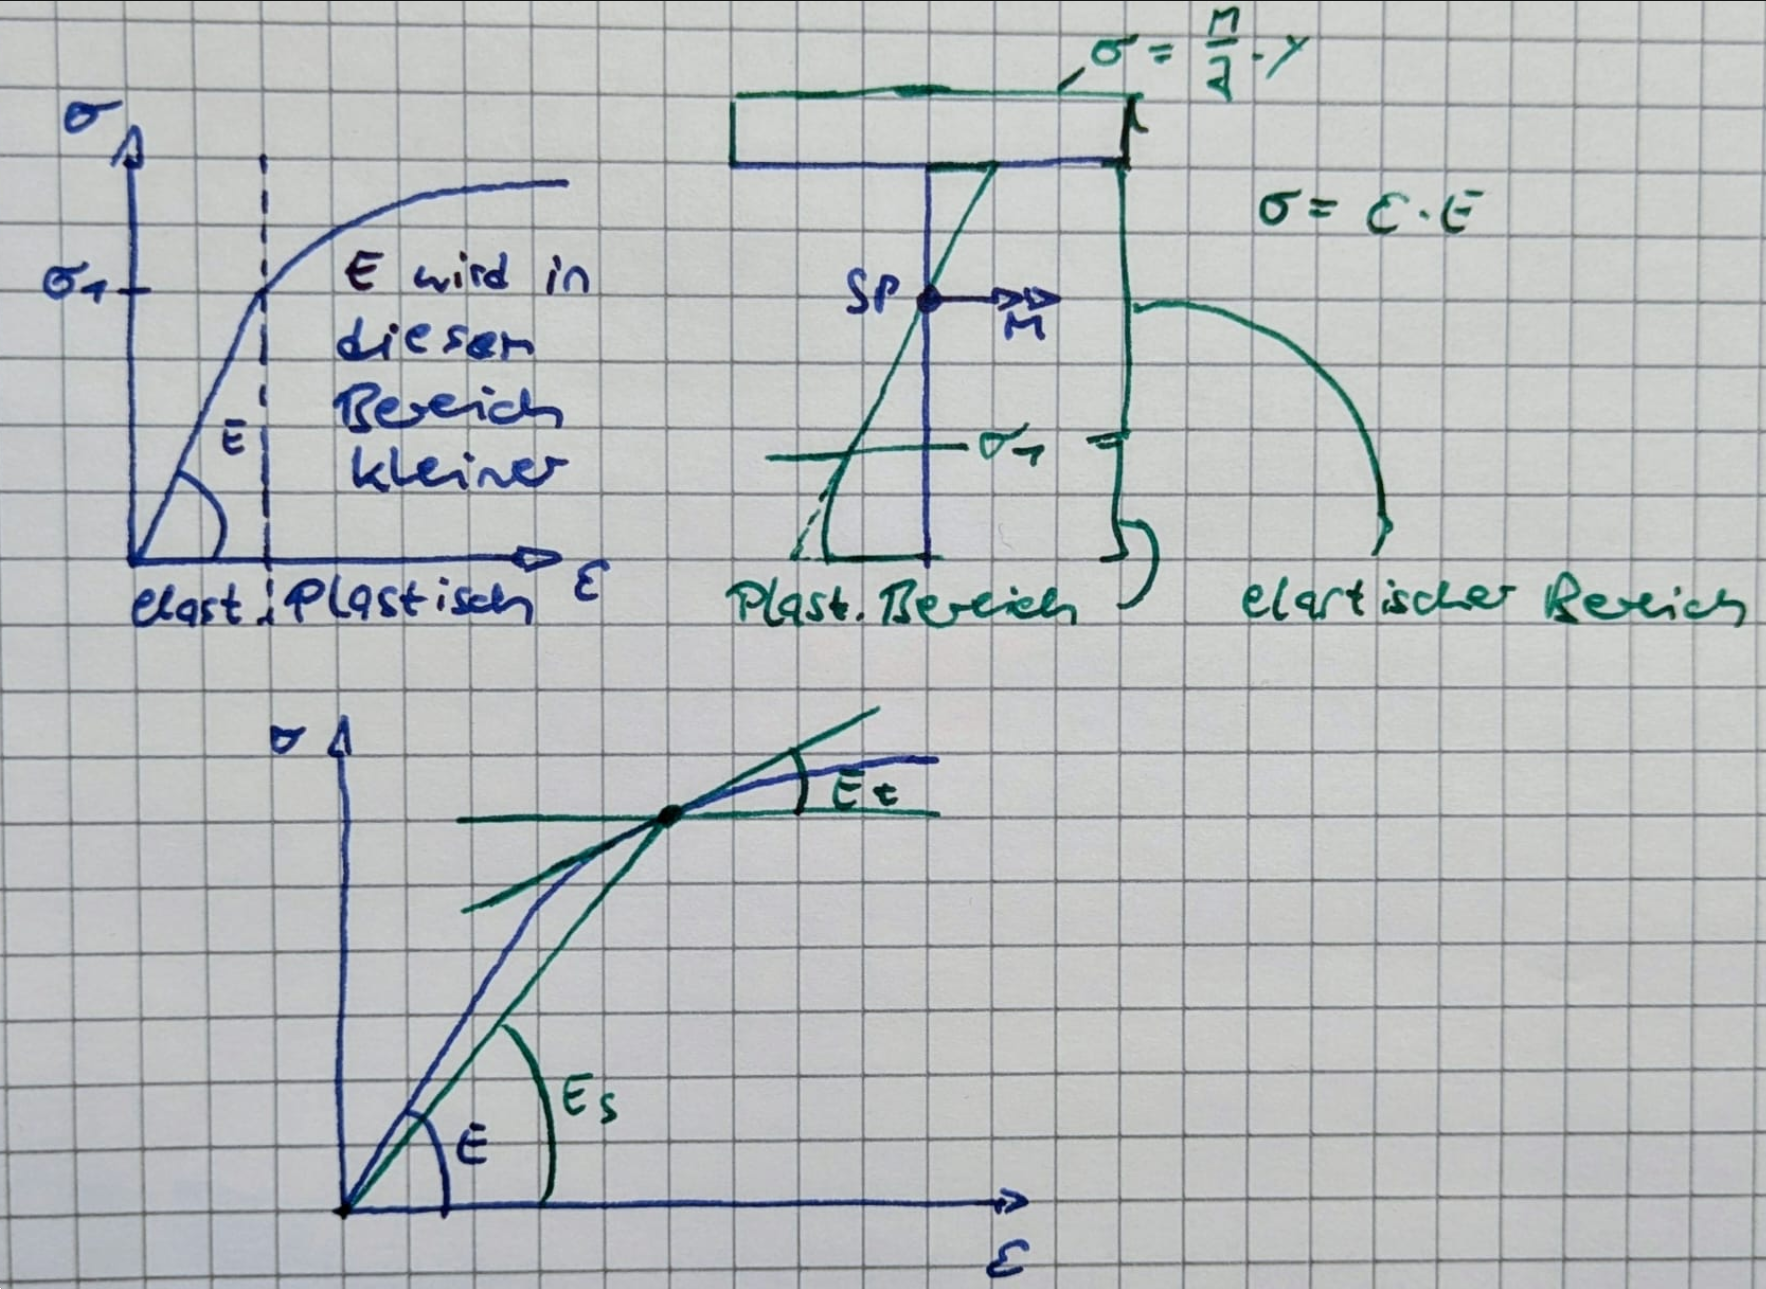 σ
σ₁
E wird in
diesem
Bereich
kleiner
E
ε
elast.
Plastisch
σ = M/I · y
σ = ε · E
SP
M
σ₁
Plast. Bereich
elastischer Bereich
σ
E t
E s
E
ε